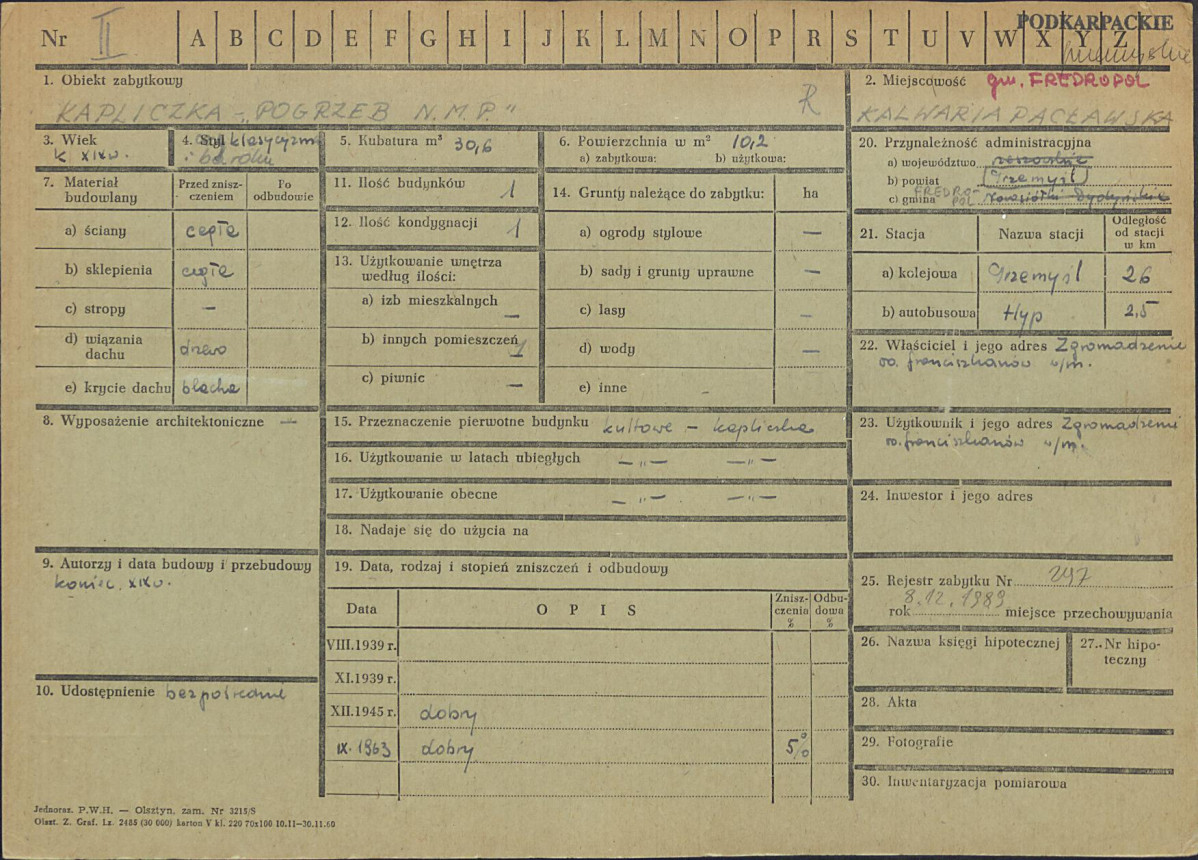 PODKARPACKIE
Nr II A B C D E F G H I J K L M N O P R S T U V W X Y Z
1. Obiekt zabytkowy
KAPLICZKA - „POGRZEB N.M.P."
R
2. Miejscowość gm. FREDROPOL
KALWARIA PACŁAWSKA
3. Wiek
k XIX w.
4. Styl klasycyzm
i baroku
5. Kubatura m³ 30,6
6. Powierzchnia w m² 10,2
a) zabytkowa: b) użytkowa:
7. Materiał budowlany
Przed zniszczeniem
Po odbudowie
a) ściany cegła
b) sklepienia cegła
c) stropy —
d) wiązania dachu drzewo
e) krycie dachu blacha
8. Wyposażenie architektoniczne —
9. Autorzy i data budowy i przebudowy
koniec XIX w.
10. Udostępnienie bezpośrednie
11. Ilość budynków 1
12. Ilość kondygnacji 1
13. Użytkowanie wnętrza
według ilości:
a) izb mieszkalnych —
b) innych pomieszczeń 1
c) piwnic —
14. Grunty należące do zabytku: ha
a) ogrody stylowe —
b) sady i grunty uprawne —
c) lasy —
d) wody —
e) inne —
15. Przeznaczenie pierwotne budynku kultowe - kapliczka
16. Użytkowanie w latach ubiegłych — „ — — „ —
17. Użytkowanie obecne — „ — — „ —
18. Nadaje się do użycia na
19. Data, rodzaj i stopień zniszczeń i odbudowy
Data OPIS Zniszczenia % Odbudowa %
VIII.1939 r.
XI.1939 r.
XII.1945 r. dobry
IX. 1963 dobry 5%
20. Przynależność administracyjna
a) województwo rzeszowskie
b) powiat Przemyśl
c) gmina FREDROPOL Nowosiółki Dydyńskie
21. Stacja Nazwa stacji Odległość od stacji w km
a) kolejowa Przemyśl 26
b) autobusowa Hyp 2,5
22. Właściciel i jego adres Zgromadzenie
oo. franciszkanów w/m.
23. Użytkownik i jego adres Zgromadzenie
oo. franciszkanów w/m.
24. Inwestor i jego adres
25. Rejestr zabytku Nr 297
rok 8.12.1989 miejsce przechowywania
26. Nazwa księgi hipotecznej
27. Nr hipoteczny
28. Akta
29. Fotografie
30. Inwentaryzacja pomiarowa
Jednoraz. P.W.H. — Olsztyn. zam. Nr 3215/S
Olszt. Z. Graf. Lz. 2485 (30 000) karton V kl. 220 70x100 10.11—30.11.60